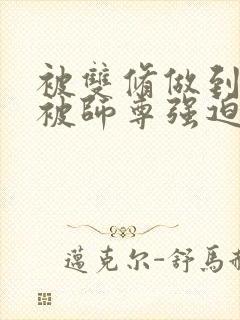 被雙脩做到
被師尊强迫
邁克尔-舒馬赫